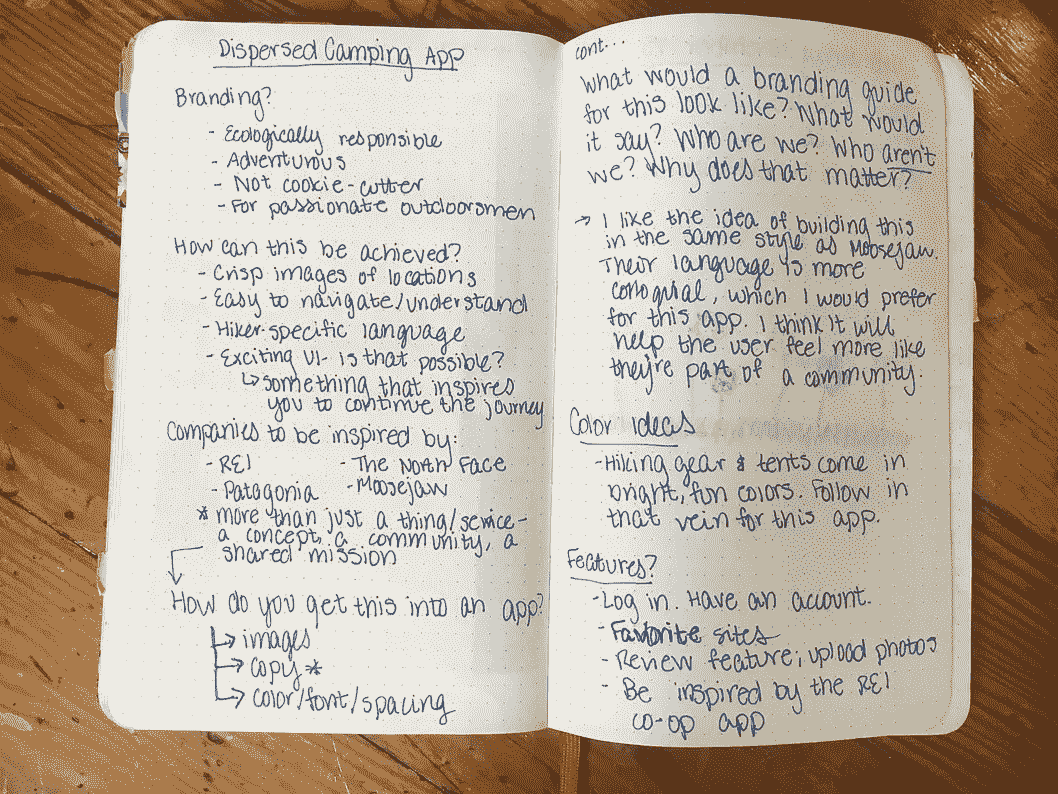 Dispersed Camping App
Branding?
- Ecologically responsible
- Adventurous
- Not cookie-cutter
- For passionate outdoorsmen
How can this be achieved?
- Crisp images of locations
- Easy to navigate/understand
- Hiker-specific language
- Exciting UI- is that possible?
↳ something that inspires
you to continue the journey
Companies to be inspired by:
- REI - The North Face
- Patagonia - Moosejaw
* more than just a thing/service-
a concept, a community, a
shared mission
How do you get this into an app?
↳ images
↳ copy *
↳ color/font/spacing
cont...
What would a branding guide
for this look like? What would
it say? Who are we? Who aren't
we? Why does that matter?
→ I like the idea of building this
in the same style as Moosejaw.
Their language is more
colloquial, which I would prefer
for this app. I think it will
help the user feel more like
they're part of a community.
Color ideas
- Hiking gear & tents come in
bright, fun colors. Follow in
that vein for this app.
Features?
- Log in. Have an account.
- Favorite sites
- Review feature, upload photos
- Be inspired by the REI
co-op app